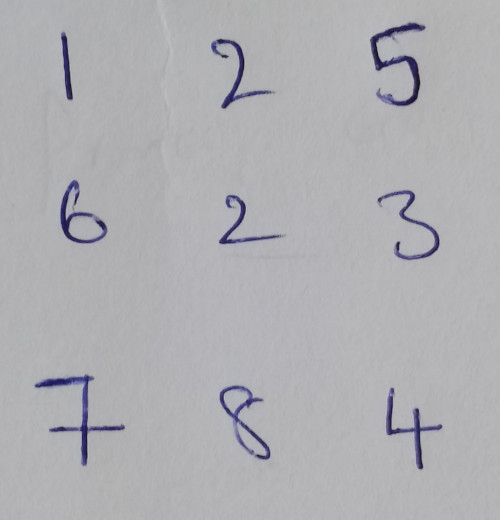 1 2 5
6 2 3
7 8 4